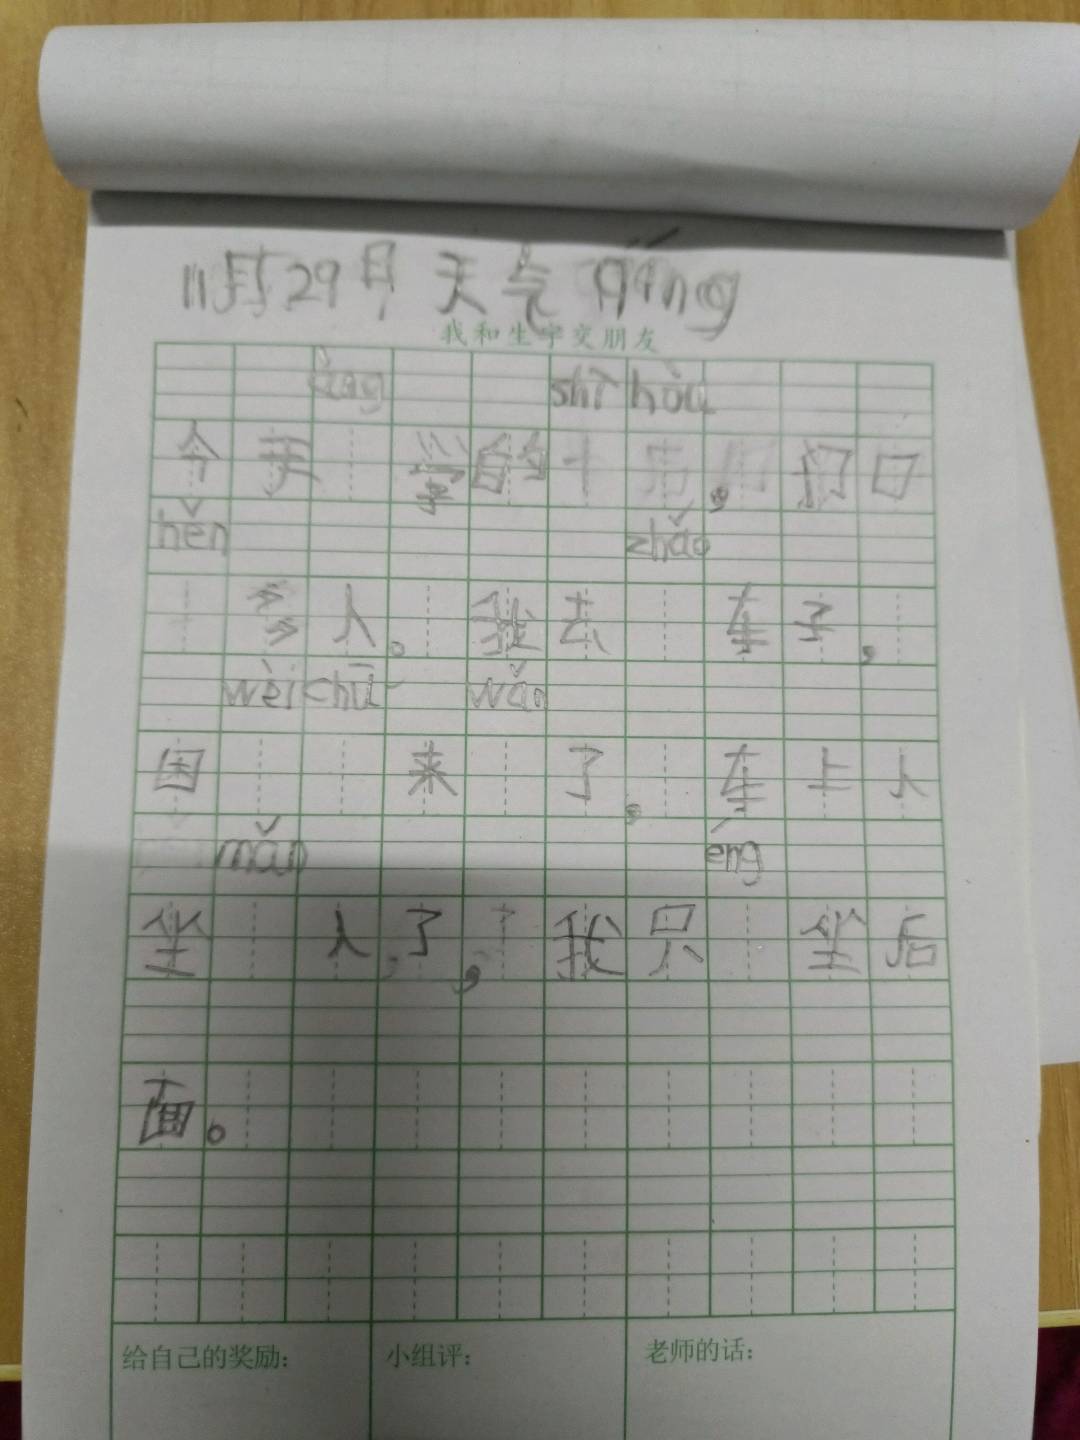 11月29日 天气 qíng
我和生字交朋友
fàng shí hòu
今天 学的 ,门口
hěn zhǎo
多人。我去 车子,
wèi chū wǎn
因 来 了。车上人
mǎn éng
坐 人了,我只 坐后
面。
给自己的奖励: 小组评: 老师的话: